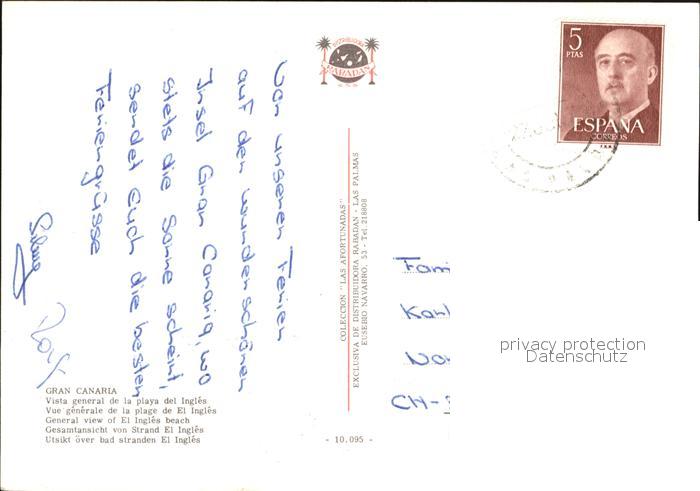 Von unseren Ferien
auf der wunderschönen
Insel Gran Canaria, wo
stets die Sonne scheint,
sendet Euch die besten
Feriengrüsse
GRAN CANARIA
Vista general de la playa del Inglés
Vue générale de la plage de El Inglés
General view of El Inglés beach
Gesamtansicht von Strand El Inglés
Utsikt över bad stranden El Inglés
DISTRIBUIDORA
RABADAN
COLECCION "LAS AFORTUNADAS"
EXCLUSIVA DE DISTRIBUIDORA RABADAN - LAS PALMAS
EUSEBIO NAVARRO, 53 - Tel. 218808
- 10.095 -
5
PTAS
ESPAÑA
CORREOS
Fam
CH-
privacy protection
Datenschutz